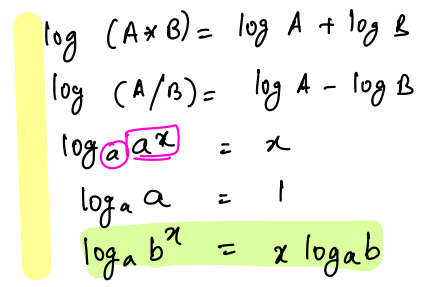 log (A * B) = log A + log B
log (A/B) = log A - log B
logₐ aˣ = x
logₐ a = 1
logₐ bˣ = x logₐ b